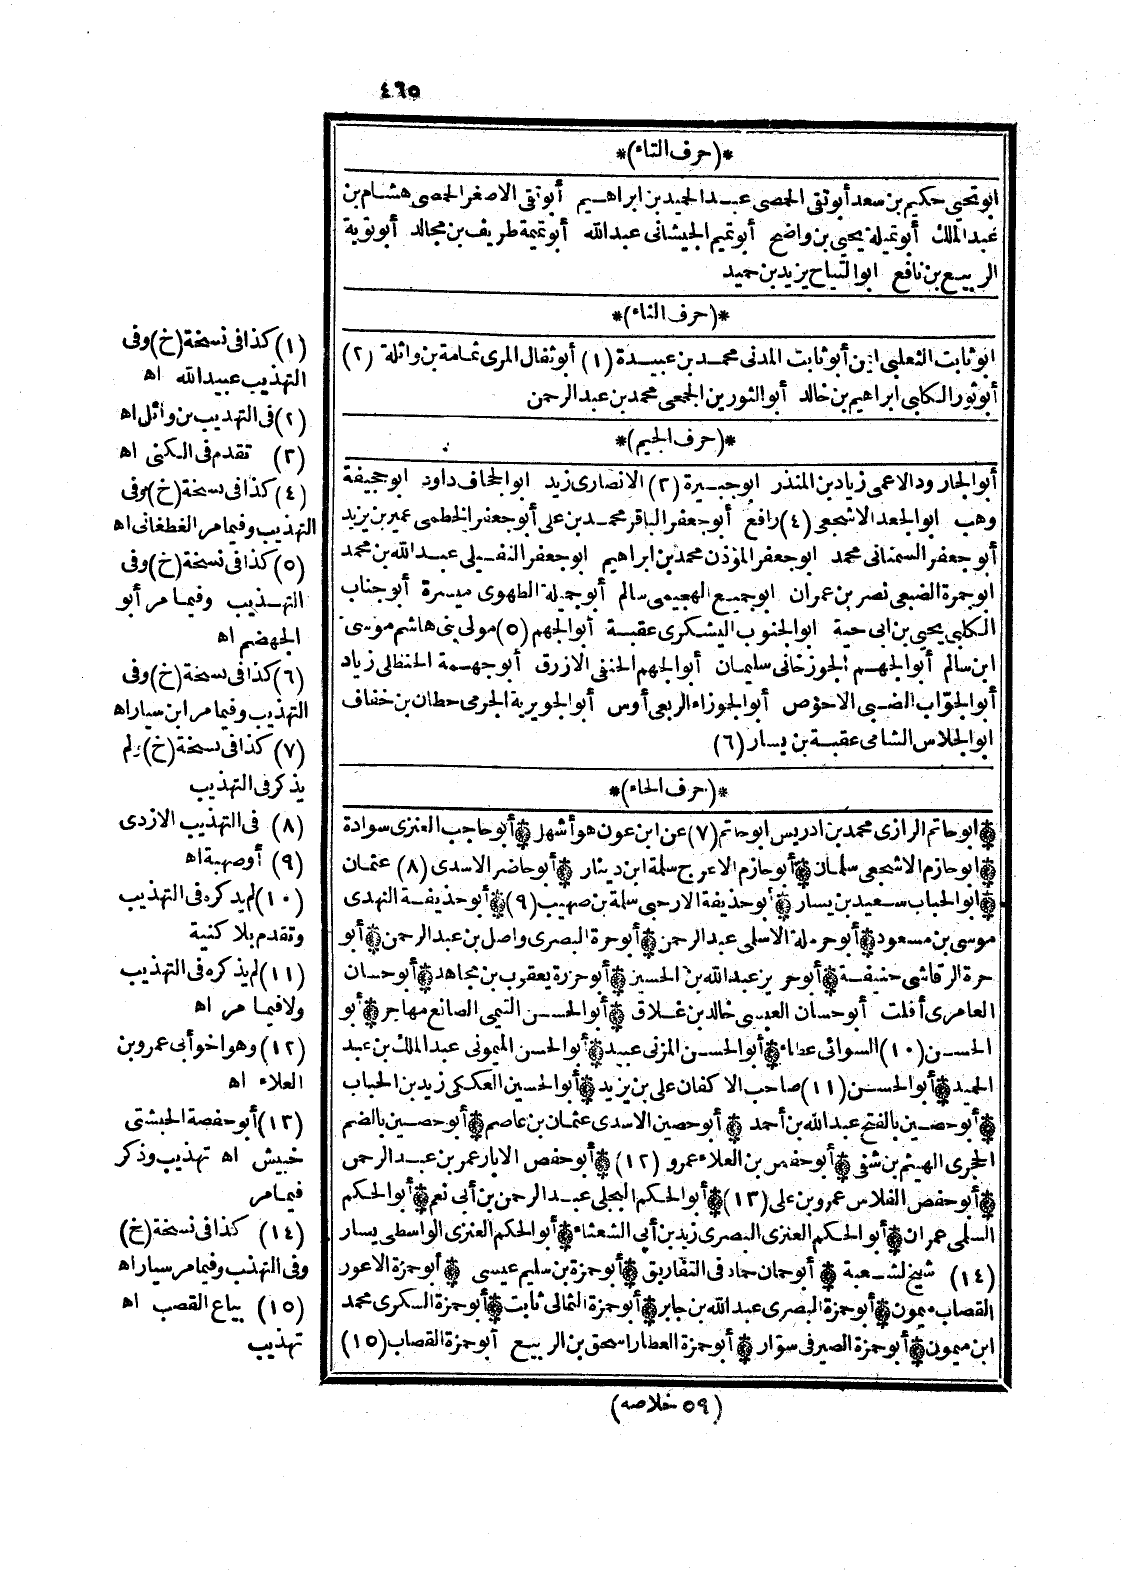 ٤٦٥
*(حرف التاء)*
ابو تحيى حكيم بن سعد أبو تقى الحمصى عبد الحميد بن ابراهيم أبو تقى الاصغر الحمصى هشام بن
عبد الملك أبو تميلة يحيى بن واضح أبو تميم الجيشانى عبد الله أبو تميمة طريف بن مجالد أبو توبة
الربيع بن نافع ابو التياح يزيد بن حميد
*(حرف الثاء)*
ابو ثابت الثعلبى ايمن أبو ثابت المدنى محمد بن عبيدة (١) أبو ثفال المرى ثمامة بن واثلة (٢)
أبو ثور الكلبى ابراهيم بن خالد أبو الثورين الجمحى محمد بن عبد الرحمن
*(حرف الجيم)*
أبو الجارود الاعمى زياد بن المنذر ابو جبيرة (٣) الانصارى زيد ابو الجحاف داود ابو جحيفة
وهب ابو الجعد الاشجعى (٤) رافع أبو جعفر الباقر محمد بن على أبو جعفر الخطمى عمير بن يزيد
أبو جعفر السمنانى محمد ابو جعفر المؤذن محمد بن ابراهيم ابو جعفر النفيلى عبد الله بن محمد
ابو جمرة الضبعى نصر بن عمران ابو جميع الهجيمى سالم أبو جميلة الطهوى ميسرة أبو جناب
الكلبى يحيى بن ابى حية ابو الجنوب اليشكرى عقبة أبو الجهم (٥) مولى بنى هاشم موسى
ابن سالم أبو الجهم الجوزخانى سليمان أبو الجهم الحنفى الازرق أبو جهمة الحنظلى زياد
أبو الجوّاب الضبى الاحوص أبو الجوزاء الربعى أوس أبو الجويرية الجرمى حطان بن خفاف
ابو الجلاس الشامى عقبة بن يسار (٦)
*(حرف الحاء)*
* ابو حاتم الرازى محمد بن ادريس ابو حاتم (٧) عن ابن عون هو أشهل * أبو حاجب العنزى سوادة
* ابو حازم الاشجعى سلمان * أبو حازم الاعرج سلمة ابن دينار * أبو حاضر الاسدى (٨) عثمان
* ابو الحباب سعيد بن يسار * أبو حذيفة الارحبى سلمة بن صهيب (٩) * أبو حذيفة النهدى
موسى بن مسعود * أبو حرملة الاسلمى عبد الرحمن * أبو حرة البصرى واصل بن عبد الرحمن * أبو
حرة الرقاشى حنيفة * أبو حريز عبد الله بن الحسين * أبو حزرة يعقوب بن مجاهد * أبو حسان
العامرى أفلت أبو حسان العبسى خالد بن غلاق * أبو الحسن التيمى الصائغ مهاجر * أبو
الحسن (١٠) السوائى عطاء * أبو الحسن المزنى عبيد * أبو الحسن الميمونى عبد الملك بن عبد
الحميد * أبو الحسن (١١) صاحب الاكفان على بن يزيد * أبو الحسين العكلى زيد بن الحباب
* أبو حضين بالفتح عبد الله بن أحمد * أبو حصين الاسدى عثمان بن عاصم * أبو حصين بالضم
الحجرى الهيثم بن شفى * أبو حفص بن العلاء عمرو (١٢) * أبو حفص الابار عمر بن عبد الرحمن
* أبو حفص الفلاس عمرو بن على (١٣) * أبو الحكم البجلى عبد الرحمن بن أبى نعم * أبو الحكم
السلمى عمران * أبو الحكم العنزى البصرى زيد بن أبى الشعثاء * أبو الحكم العنزى الواسطى يسار
(١٤) شيخ لشعبة * أبو حمان حماد فى التفاريق * أبو حمزة بن سليم عيسى * أبو حمزة الاعور
القصاب ميمون * أبو حمزة البصرى عبد الله بن جابر * أبو حمزة الثمالى ثابت * أبو حمزة السكرى محمد
ابن ميمون * أبو حمزة الصيرفى سوّار * أبو حمزة العطار اسحق بن الربيع أبو حمزة القصاب (١٥)
(٥٩ خلاصه)
(١) كذا فى نسخة (خ) وفى
التهذيب عبيد الله اه
(٢) فى التهذيب بن وائل اه
(٣) تقدم فى الكنى اه
(٤) كذا فى نسخة (خ) وفى
التهذيب وفيما مر الغطغانى اه
(٥) كذا فى نسخة (خ) وفى
التهذيب وفيما مر أبو
الجهضم اه
(٦) كذا فى نسخة (خ) وفى
التهذيب وفيما مر ابن سيار اه
(٧) كذا فى نسخة (خ) ولم
يذكر فى التهذيب
(٨) فى التهذيب الازدى
(٩) أو صهبة اه
(١٠) لم يذكره فى التهذيب
وتقدم بلا كنية
(١١) لم يذكره فى التهذيب
ولا فيما مر اه
(١٢) وهو اخو أبى عمرو بن
العلاء اه
(١٣) أبو حفصة الحبشى
حبيش اه تهذيب وذكر
فيما مر
(١٤) كذا فى نسخة (خ)
وفى التهذب وفيما مر سيار اه
(١٥) بياع القصب اه
تهذيب